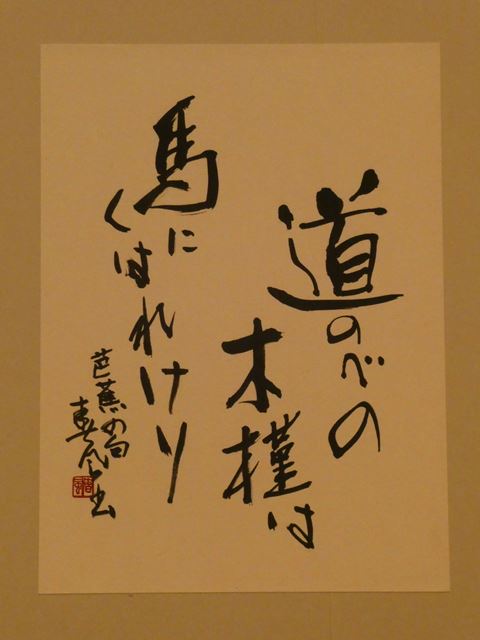 道のべの
木槿は
馬に
くはれけり
芭蕉の句
春風書